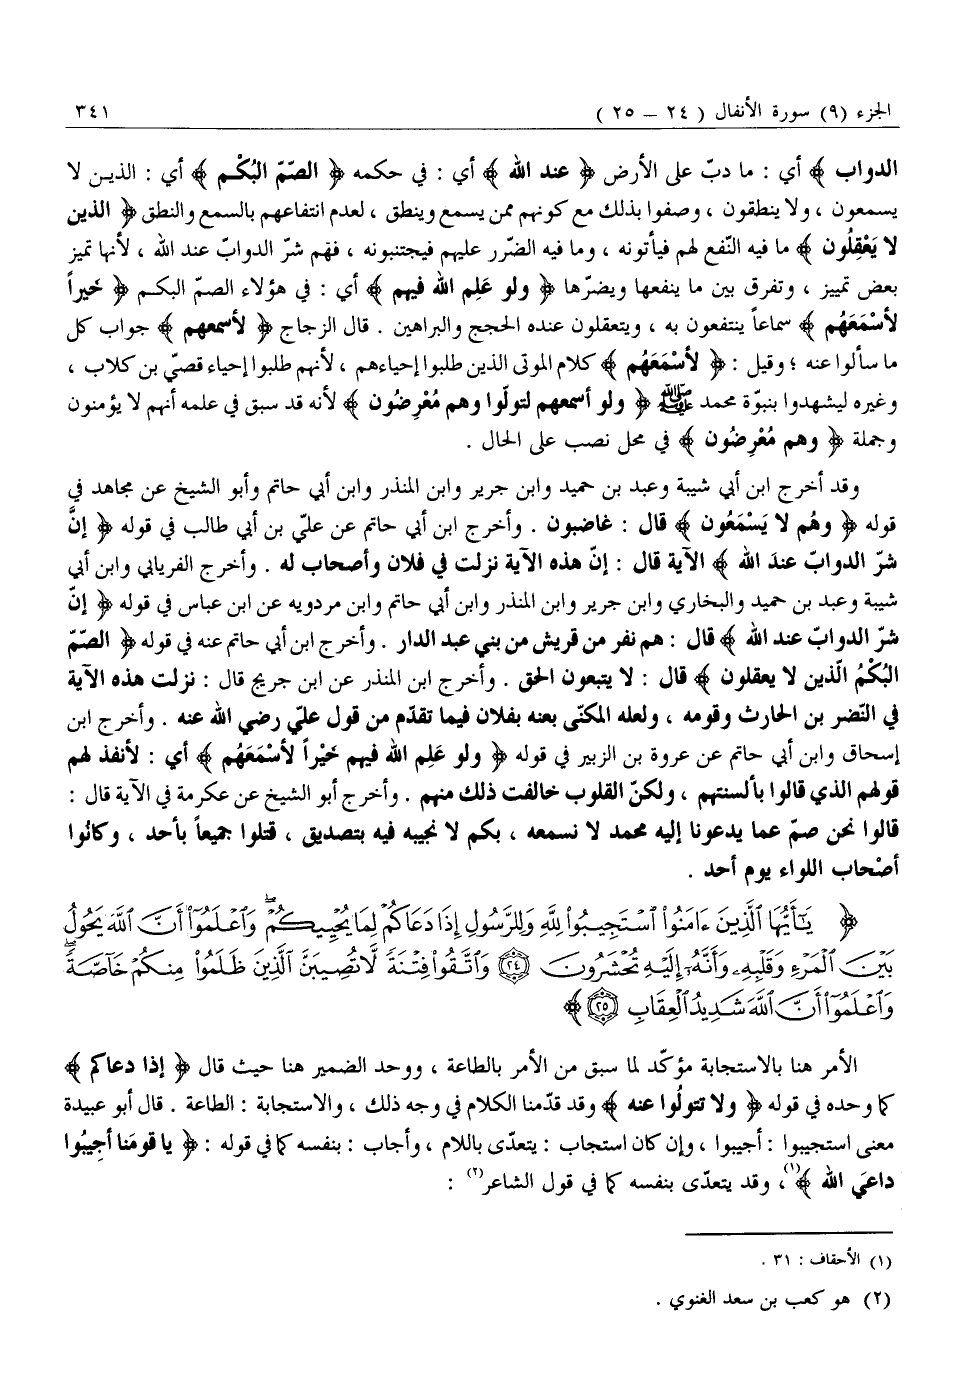 الجزء (٩) سورة الأنفال ( ٢٤ ــ ٢٥ ) ٣٤١
الدواب ﴾ أي : ما دبّ على الأرض ﴿ عند الله ﴾ أي : في حكمه ﴿ الصّمّ البُكْم ﴾ أي : الذين لا
يسمعون ، ولا ينطقون ، وصفوا بذلك مع كونهم ممن يسمع وينطق ، لعدم انتفاعهم بالسمع والنطق ﴿ الذين
لا يَعْقِلُون ﴾ ما فيه النّفع لهم فيأتونه ، وما فيه الضّرر عليهم فيجتنبونه ، فهَم شرّ الدوابّ عند الله ، لأنها تميز
بعض تمييز ، وتفرق بين ما ينفعها ويضرّها ﴿ ولو عَلِم الله فيهم ﴾ أي : في هؤلاء الصمّ البكم ﴿ خَيراً
لأسْمَعَهُم ﴾ سماعاً ينتفعون به ، ويتعقلون عنده الحجج والبراهين . قال الزجاج ﴿ لأسمعهم ﴾ جواب كل
ما سألوا عنه ؛ وقيل : ﴿ لأسْمَعَهُم ﴾ كلام الموتى الذين طلبوا إحياءهم ، لأنهم طلبوا إحياء قصيّ بن كلاب ،
وغيره ليشهدوا بنبوّة محمد ﷺ ﴿ ولو أسمعهم لتولّوا وهم مُعْرِضُون ﴾ لأنه قد سبق في علمه أنهم لا يؤمنون
وجملة ﴿ وهم مُعْرِضُون ﴾ في محل نصب على الحال .
وقد أخرج ابن أبي شيبة وعبد بن حميد وابن جرير وابن المنذر وابن أبي حاتم وأبو الشيخ عن مجاهد في
قوله ﴿ وهُم لا يَسْمَعُون ﴾ قال : غاضبون . وأخرج ابن أبي حاتم عن عليّ بن أبي طالب في قوله ﴿ إنَّ
شرّ الدوابّ عندَ الله ﴾ الآية قال : إنّ هذه الآية نزلت في فلان وأصحاب له . وأخرج الفريابي وابن أبي
شيبة وعبد بن حميد والبخاري وابن جرير وابن المنذر وابن أبي حاتم وابن مردويه عن ابن عباس في قوله ﴿ إنّ
شرّ الدوابّ عند الله ﴾ قال : هم نفر من قريش من بني عبد الدار . وأخرج ابن أبي حاتم عنه في قوله ﴿ الصّمّ
البُكْمُ الّذين لا يعقلون ﴾ قال : لا يتبعون الحق . وأخرج ابن المنذر عن ابن جريج قال : نزلت هذه الآية
في النّضر بن الحارث وقومه ، ولعله المكنّى بعنه بفلان فيما تقدّم من قول عليّ رضي الله عنه . وأخرج ابن
إسحاق وابن أبي حاتم عن عروة بن الزبير في قوله ﴿ ولو عَلِم الله فيهم خَيْراً لأسْمَعَهُم ﴾ أي : لأنفذ لهم
قولهم الذي قالوا بألسنتهم ، ولكنّ القلوب خالفت ذلك منهم . وأخرج أبو الشيخ عن عكرمة في الآية قال :
قالوا نحن صمّ عما يدعونا إليه محمد لا نسمعه ، بكم لا نجيبه فيه بتصديق ، قتلوا جميعاً بأحد ، وكانُوا
أصْحاب اللواء يوم أحد .
﴿ يَٰٓأَيُّهَا ٱلَّذِينَ ءَامَنُوا۟ ٱسْتَجِيبُوا۟ لِلَّهِ وَلِلرَّسُولِ إِذَا دَعَاكُمْ لِمَا يُحْيِيكُمْ ۖ وَٱعْلَمُوٓا۟ أَنَّ ٱللَّهَ يَحُولُ
بَيْنَ ٱلْمَرْءِ وَقَلْبِهِۦ وَأَنَّهُۥٓ إِلَيْهِ تُحْشَرُونَ ٢٤ وَٱتَّقُوا۟ فِتْنَةً لَّا تُصِيبَنَّ ٱلَّذِينَ ظَلَمُوا۟ مِنكُمْ خَآصَّةً ۖ
وَٱعْلَمُوٓا۟ أَنَّ ٱللَّهَ شَدِيدُ ٱلْعِقَابِ ٢٥ ﴾
الأمر هنا بالاستجابة مؤكّد لما سبق من الأمر بالطاعة ، ووحد الضمير هنا حيث قال ﴿ إذا دعاكم ﴾
كما وحده في قوله ﴿ ولا تتولُوا عنه ﴾ وقد قدّمنا الكلام في وجه ذلك ، والاستجابة : الطاعة . قال أبو عبيدة
معنى استجيبوا : أجيبوا ، وإن كان استجاب : يتعدّى باللام ، وأجاب : بنفسه كما في قوله : ﴿ يا قومَنا أجِيبُوا
داعيَ الله ﴾(١)، وقد يتعدّى بنفسه كما في قول الشاعر(٢) :
(١) الأحقاف : ٣١ .
(٢) هو كعب بن سعد الغنوي .